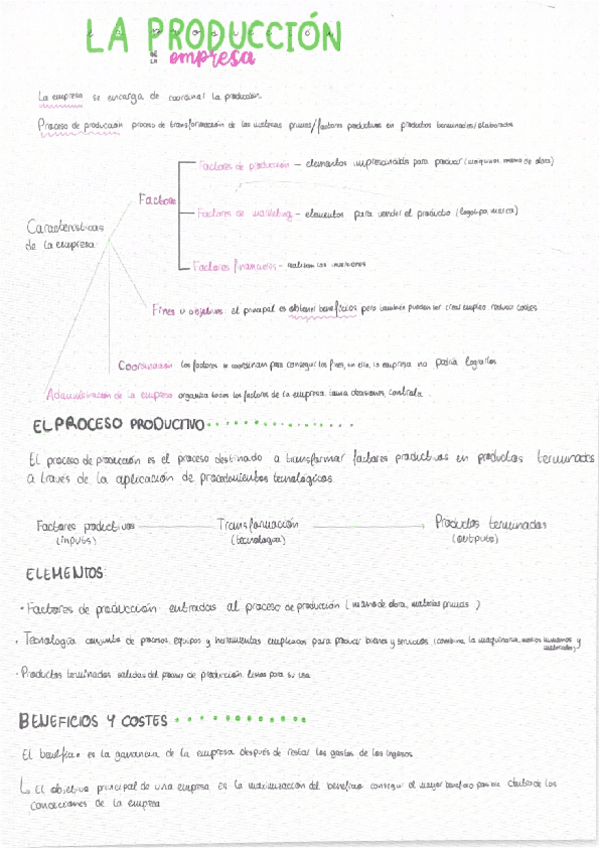 LA PRODUCCIÓN
DE LA empresa
La empresa se encarga de coordinar la producción.
Proceso de producción proceso de transformación de las materias primas/factores productivos en productos terminados/elaborados
Factores de producción – elementos imprescindibles para producir (maquinaria, mano de obra)
Factores
Factores de marketing – elementos para vender el producto (logotipo, marca)
Características
de la empresa
Factores financieros – realizan las inversiones
Fines u objetivos: el principal es obtener beneficios pero también pueden ser crear empleo, reducir costes
Coordinación los factores se coordinan para conseguir los fines, sin ella, la empresa no podría lograrlos
Administración de la empresa organiza todos los factores de la empresa, toma decisiones, controla.
EL PROCESO PRODUCTIVO
El proceso de producción es el proceso destinado a transformar factores productivos en productos terminados
a través de la aplicación de procedimientos tecnológicos
Factores productivos Transformación Productos terminados
(inputs) (tecnología) (outputs)
ELEMENTOS:
· Factores de producción entradas al proceso de producción (mano de obra, materias primas)
· Tecnología conjunto de procesos, equipos y herramientas empleados para producir bienes y servicios (combina la maquinaria, medios humanos y
materiales)
· Productos terminados salidas del proceso de producción listos para su uso
BENEFICIOS Y COSTES
El beneficio es la ganancia de la empresa después de restar los gastos de los ingresos
El objetivo principal de una empresa es la maximización del beneficio conseguir el mayor beneficio posible dentro de las
condiciones de la empresa